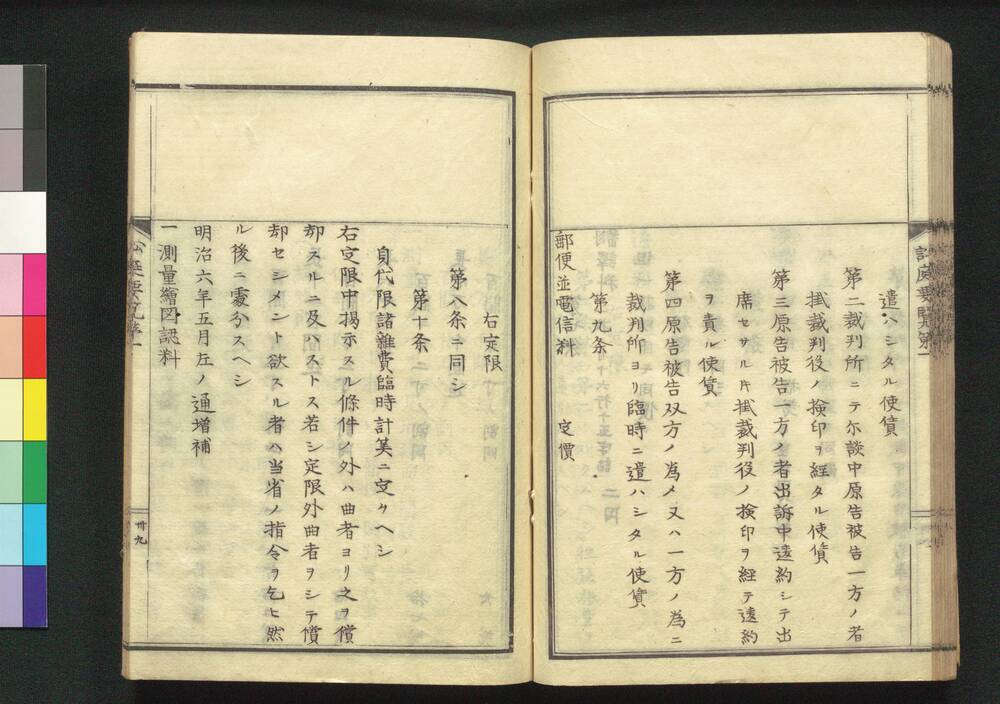 遣ハシタル使賃
第二裁判所ニテ尓談中原告被告一方ノ者
掛裁判役ノ検印ヲ経タル使賃
第三原告被告一方ノ者出訴中遠約シテ出
席セサル片掛裁判役ノ検印ヲ経テ遠約
ヲ責ル使賃
第四原告被告双方ノ為メ又ハ一方ノ為ニ
裁判所ヨリ臨時ニ遣ハシタル使賃
第九条
郵便並電信料 定價
右定限
第八条ニ同シ
第十条
身代限諸雑費臨時計筭ニ定ケヘシ
右定限中掲示スル條件ノ外ハ曲者ヨリ之ヲ償
却スルニ及ハストス若シ定限外曲者ヲシテ償
却セシメント欲スル者ハ当省ノ指令ヲ乞ヒ然
ル後ニ處分スヘシ
明治六年五月左ノ通増補
一測量繪図認料
卅九